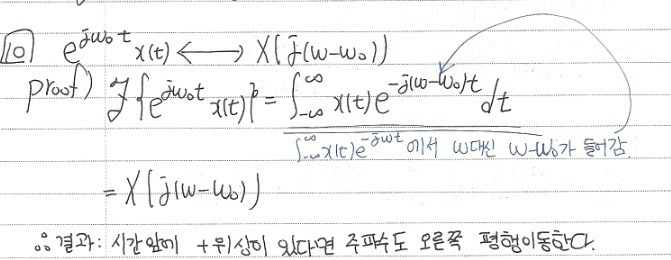 10 e^{jw₀t} x(t) ⟷ X(j(w-w₀))
proof) ℱ{e^{jw₀t} x(t)} = ∫_{-∞}^{∞} x(t)e^{-j(w-w₀)t} dt
∫_{-∞}^{∞} x(t)e^{-jwt} 에서 w대신 w-w₀가 들어감.
= X(j(w-w₀))
∴ 결과: 시간앞에 +위상이 있다면 주파수도 오른쪽 평행이동한다.